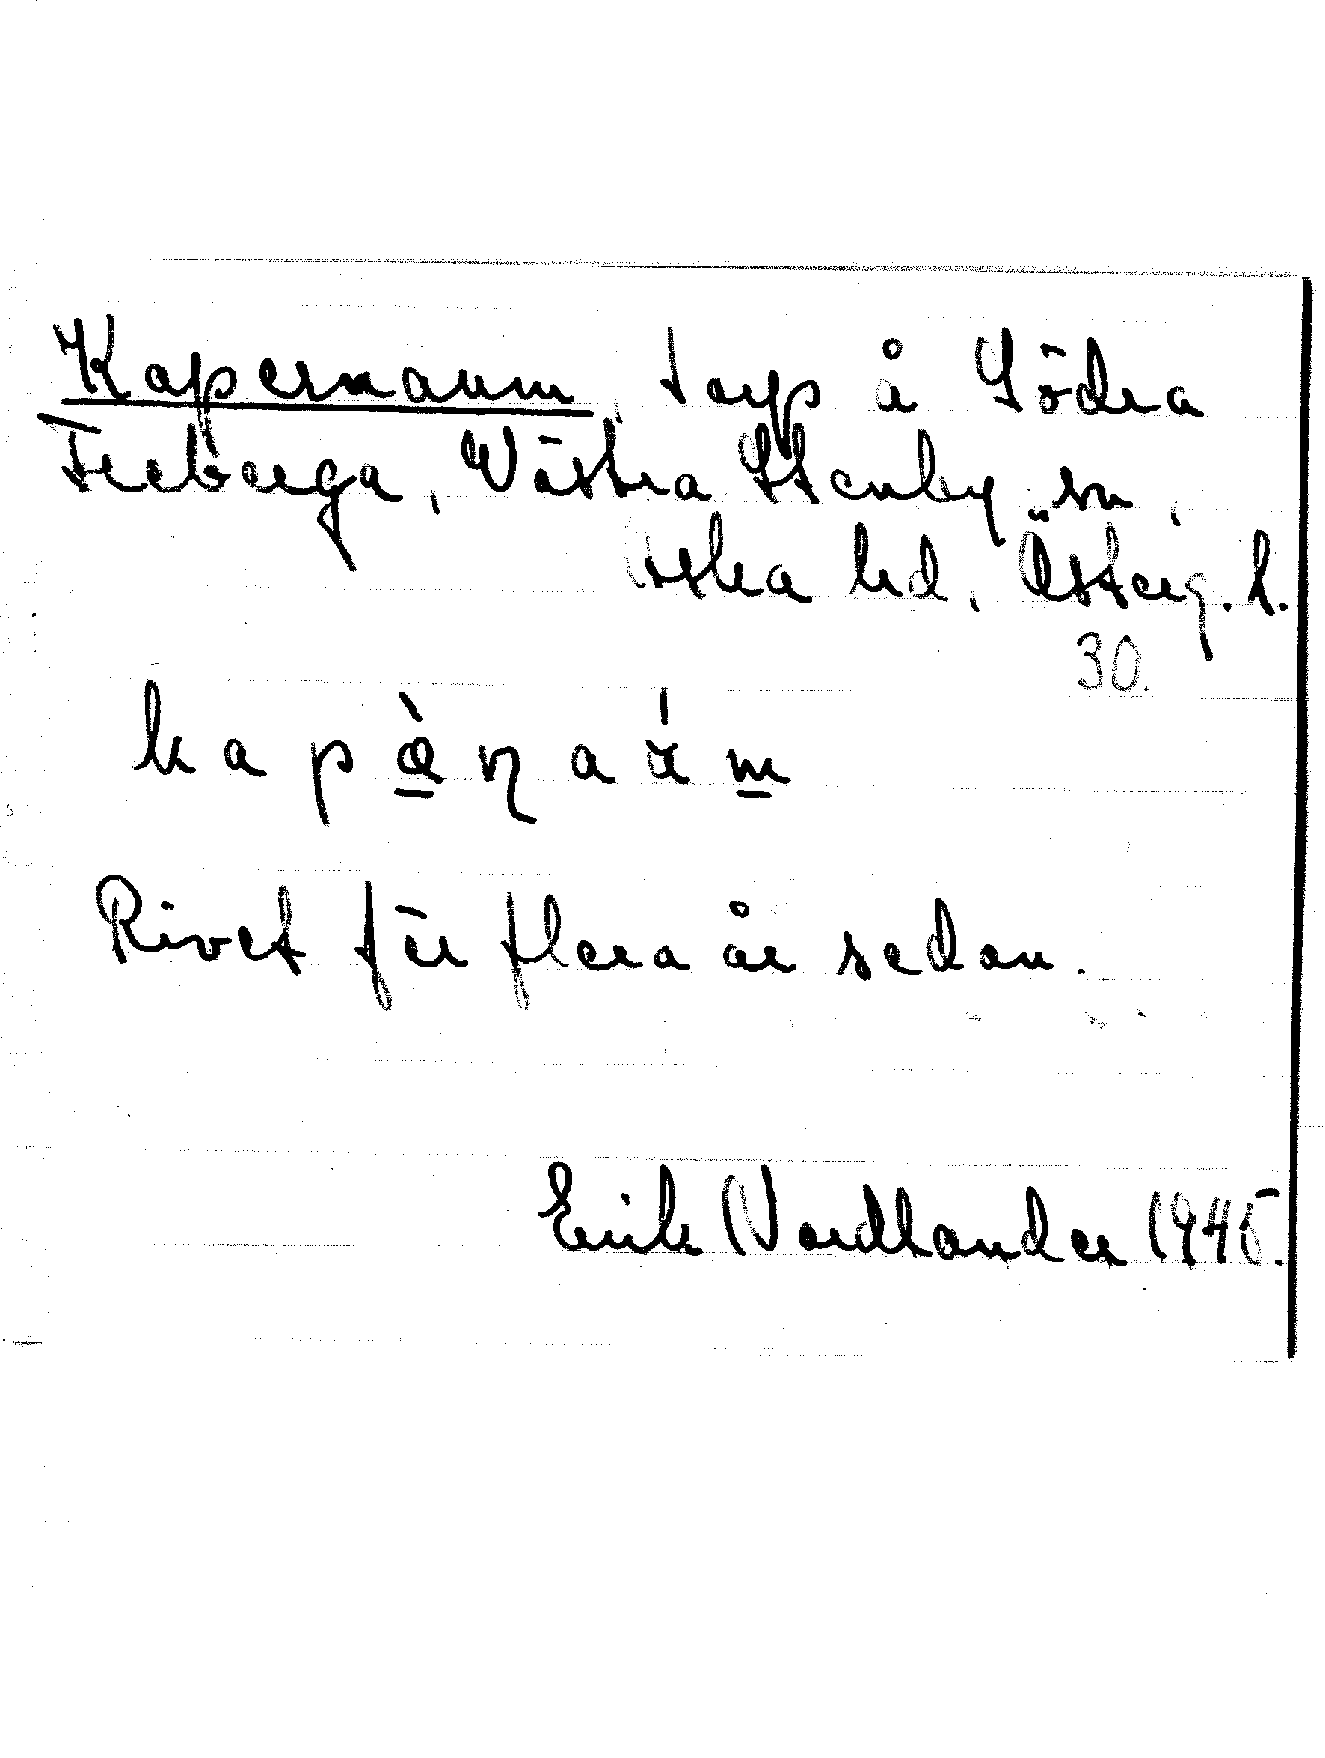 Kapernaum, torp å Södra
Freberga, Västra Stenby sn,
Aska hd, Österg. l.
30.
Rivet för flera år sedan.
Erik Nordlander 1945.